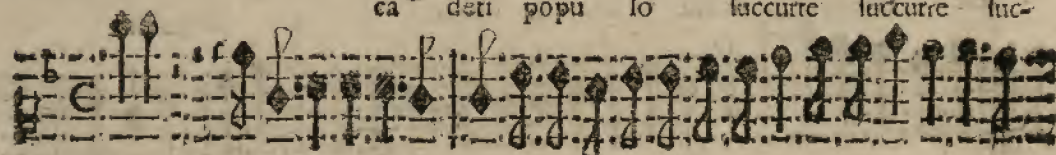 ca deti popu lo succurre succurre suc-